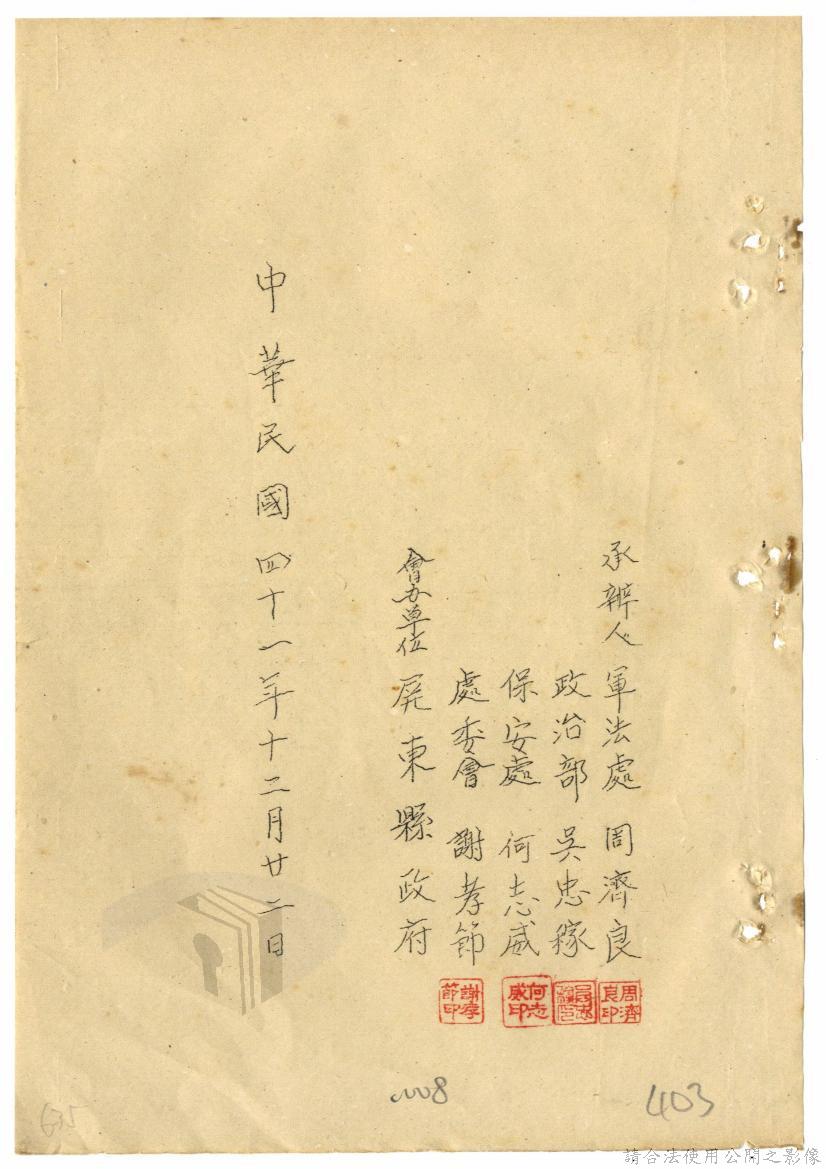 承辦人 軍法處 周濟良
政治部 吳忠稼
保安處 何志威
處委會 謝孝節
會办单位 屏東縣政府
中華民國四十一年十二月廿二日
周濟良印
何志威印
謝孝節印
0008
403
請合法使用公開之影像